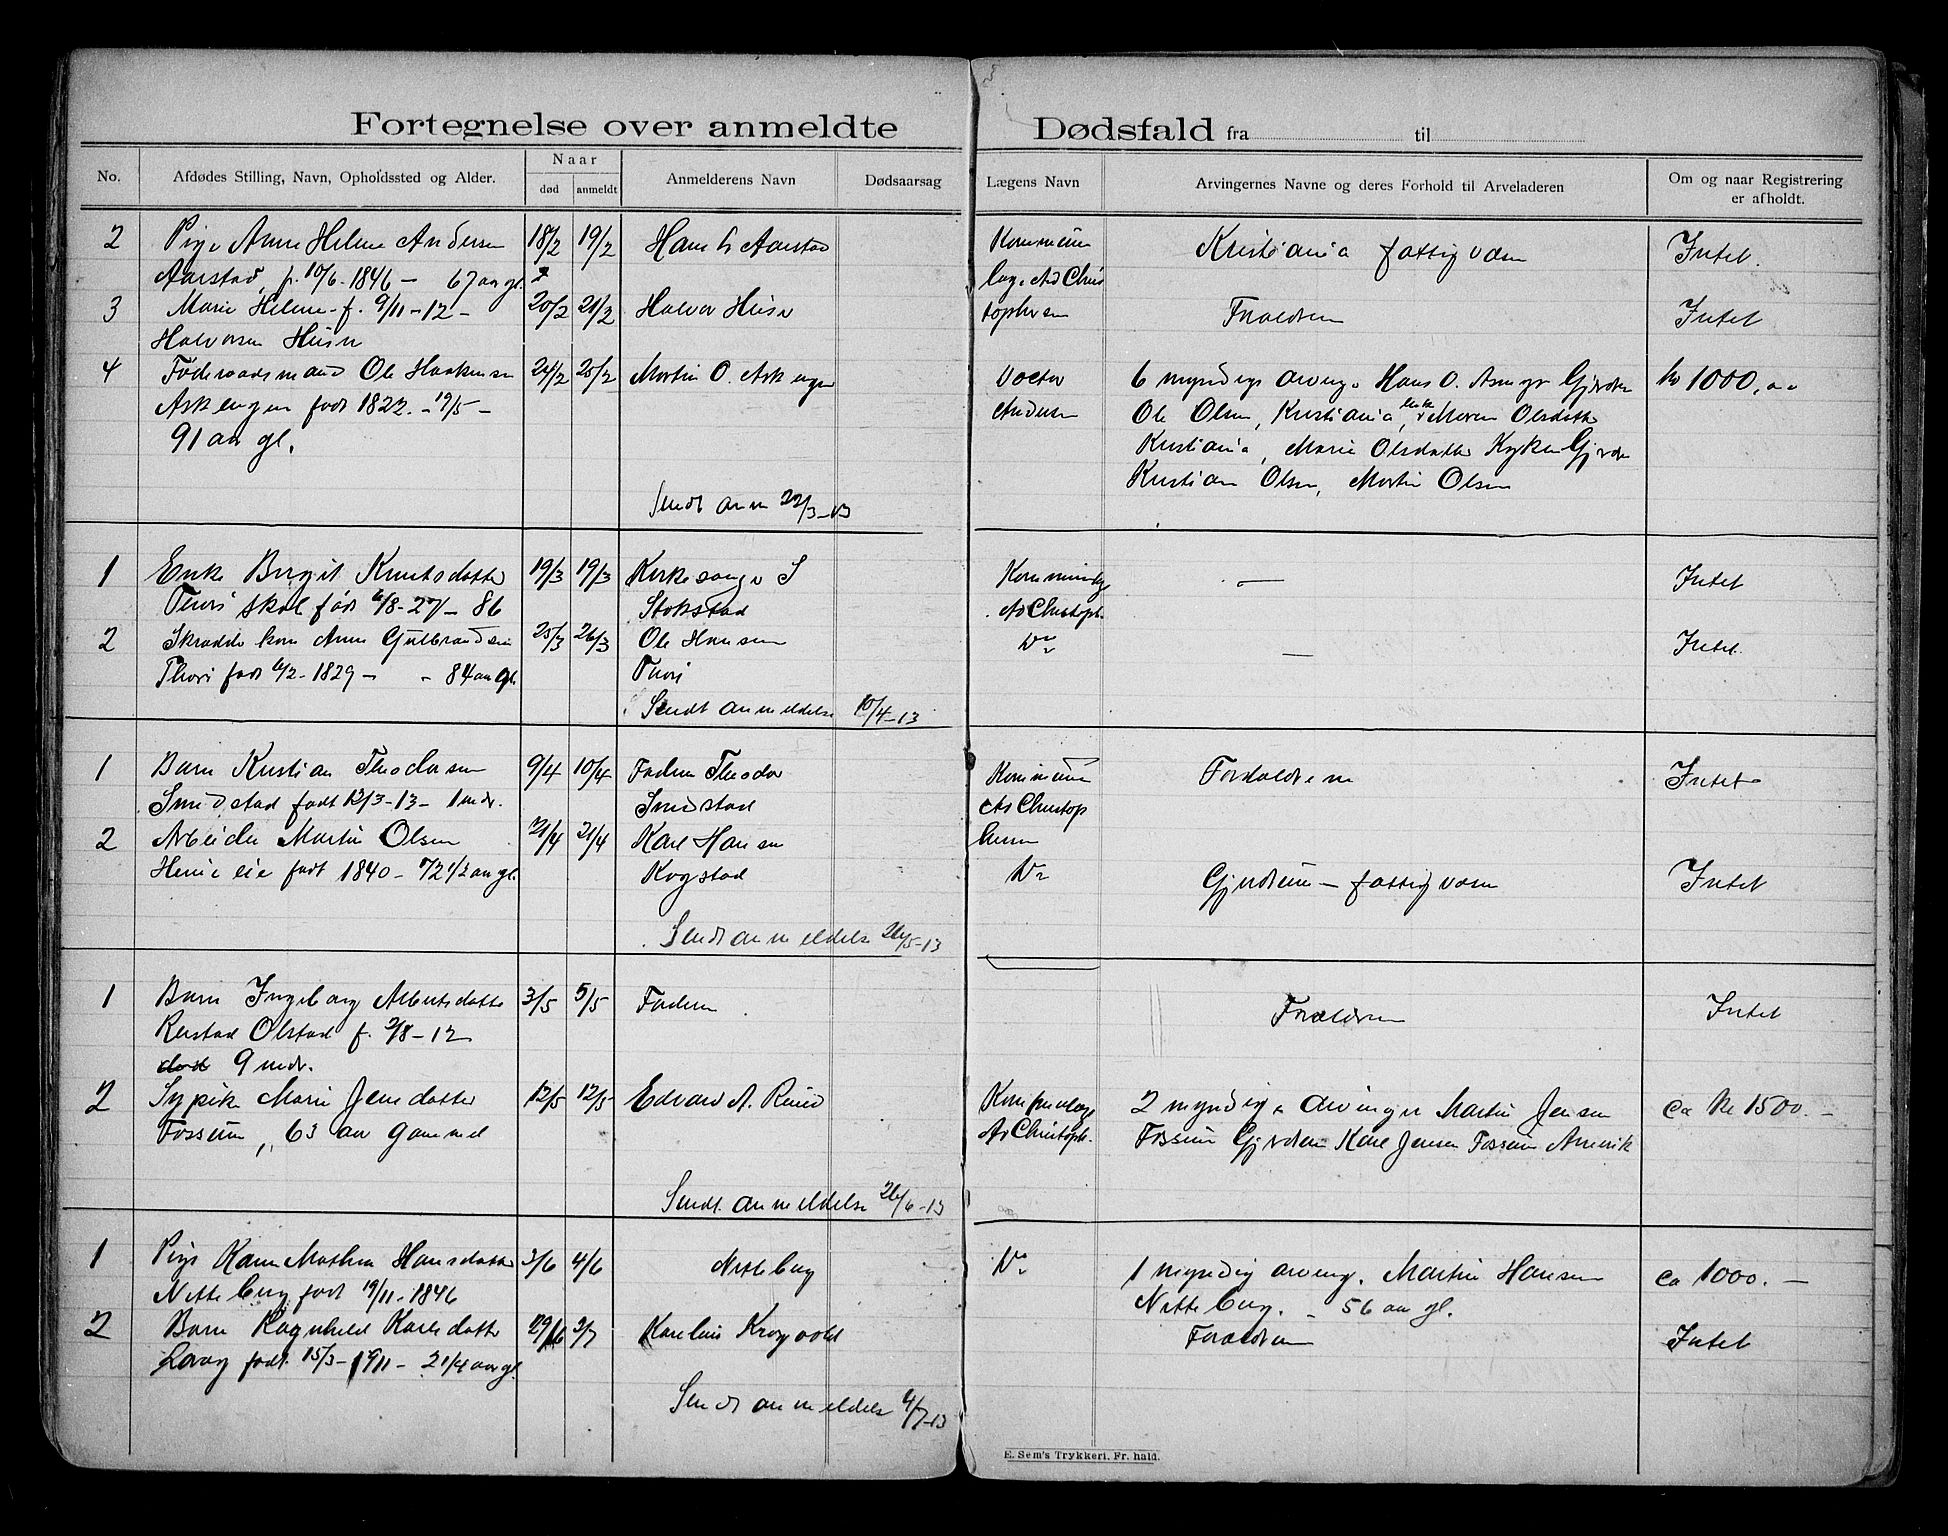 Fortegnelse over anmeldte Dødsfald fra til
No.
Afdødes Stilling, Navn, Opholdssted og Alder.
Naar
død
anmeldt
Anmelderens Navn
Dødsaarsag
Lægens Navn
Arvingernes Navne og deres Forhold til Arveladeren
Om og naar Registrering
er afholdt.
2 Pige Anne Helene Andersen 18/2 19/2 Hans L Aarstad Kristiania fattigvæsn Intet.
Aarstad, f. 10/6-1846 — 67 aar gl.
3 Marie Helene f. 9/11-12 - 20/2 21/2 Halvor Forældren Intet
Halvorsen
4 Føderaadsmand Ole Haakensen 24/2 25/2 Martin O. Askengen Doctor 6 myndige arvinge Hans O. Gjerdrum kr 1000,
Askengen født 1822. - 19/5 - Andersen Ole Olsen, Kristiania, Maren Olsdatter
91 aar gl. Kristiania, Marie Olsdatter Gjerdr
Kristian Olsen, Martin Olsen
Sendt anm 22/3-13
1 Enke Birgit Knutsdatter 19/3 19/3 Kirkesanger S — Intet
født 6/8-27 - 86 Stokstad Ad Christoph.
2 Anne Gulbrandsen 25/3 26/3 Ole Hansen — Intet.
født 6/2-1829 - - 84 aar gl.
Sendt anmeldelse 10/4-13
1 Barn Kristian Theodorsen 9/4 10/4 Faderen Theodor Forældrene Intet
Smedstad født 12/3-13 - 1 mdr. Smedstad Ad Christop
2 Arbeider Martin Olsen 21/4 21/4 Karl Hansen hersen
født 1840 - 72 1/2 aar gl. Kogstad Gjerdrum - fattigvæsn Intet
Sendt anmeldelse 26/5-13
1 Barn Ingeborg Albertsdatter 3/5 5/5 Faderen Forældren Intet
Olstad f. 2/8-12
9 mdr.
2 Sypike Marie Jensdatter 12/5 12/5 Edvard A. 2 myndige arvinger Martin Jensen Ca kr 1500.—
Fossum, 63 aar gammel Ad Christoph. Fossum Gjerdrum Karl Jensen Fossum Amerik
Sendt anmeldelse 26/6-13
1 Pige Karen Mathea Hansdatter 3/6 4/6 Nitteberg 1 myndig arving. Martin Hansen Ca 1000.—
Nitteberg født 19/11-1846 Nitteberg. - 56 aar gl.
2 Barn Ragnhild Karlsdatter 29/6 3/7 Karelius Krogvold Forældren Intet
født 15/3-1911 - 2 1/4 aar gl.
Sendt anmeldelse 4/7-13
E. Sem's Trykkeri, Fr. hald.